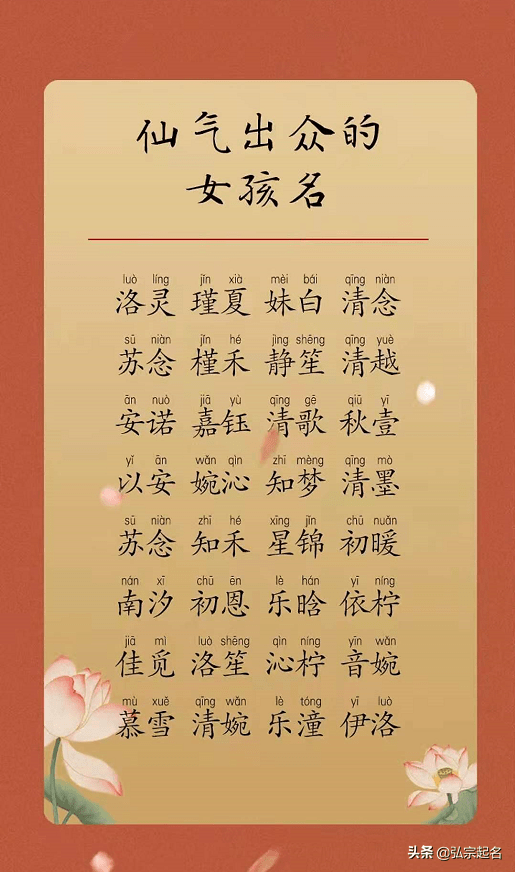 仙气出众的
女孩名
luò líng jǐn xià mèi bái qīng niàn
洛灵 瑾夏 妹白 清念
sū niàn jǐn hé jìng shēng qīng yuè
苏念 槿禾 静笙 清越
ān nuò jiā yù qīng gē qiū yī
安诺 嘉钰 清歌 秋壹
yǐ ān wǎn qìn zhī mèng qīng mò
以安 婉沁 知梦 清墨
sū niàn zhī hé xīng jǐn chū nuǎn
苏念 知禾 星锦 初暖
nán xī chū ēn lè hán yī níng
南汐 初恩 乐晗 依柠
jiā mì luò shēng qìn níng yīn wǎn
佳觅 洛笙 沁柠 音婉
mù xuě qīng wǎn lè tóng yī luò
慕雪 清婉 乐潼 伊洛
头条 @弘宗起名